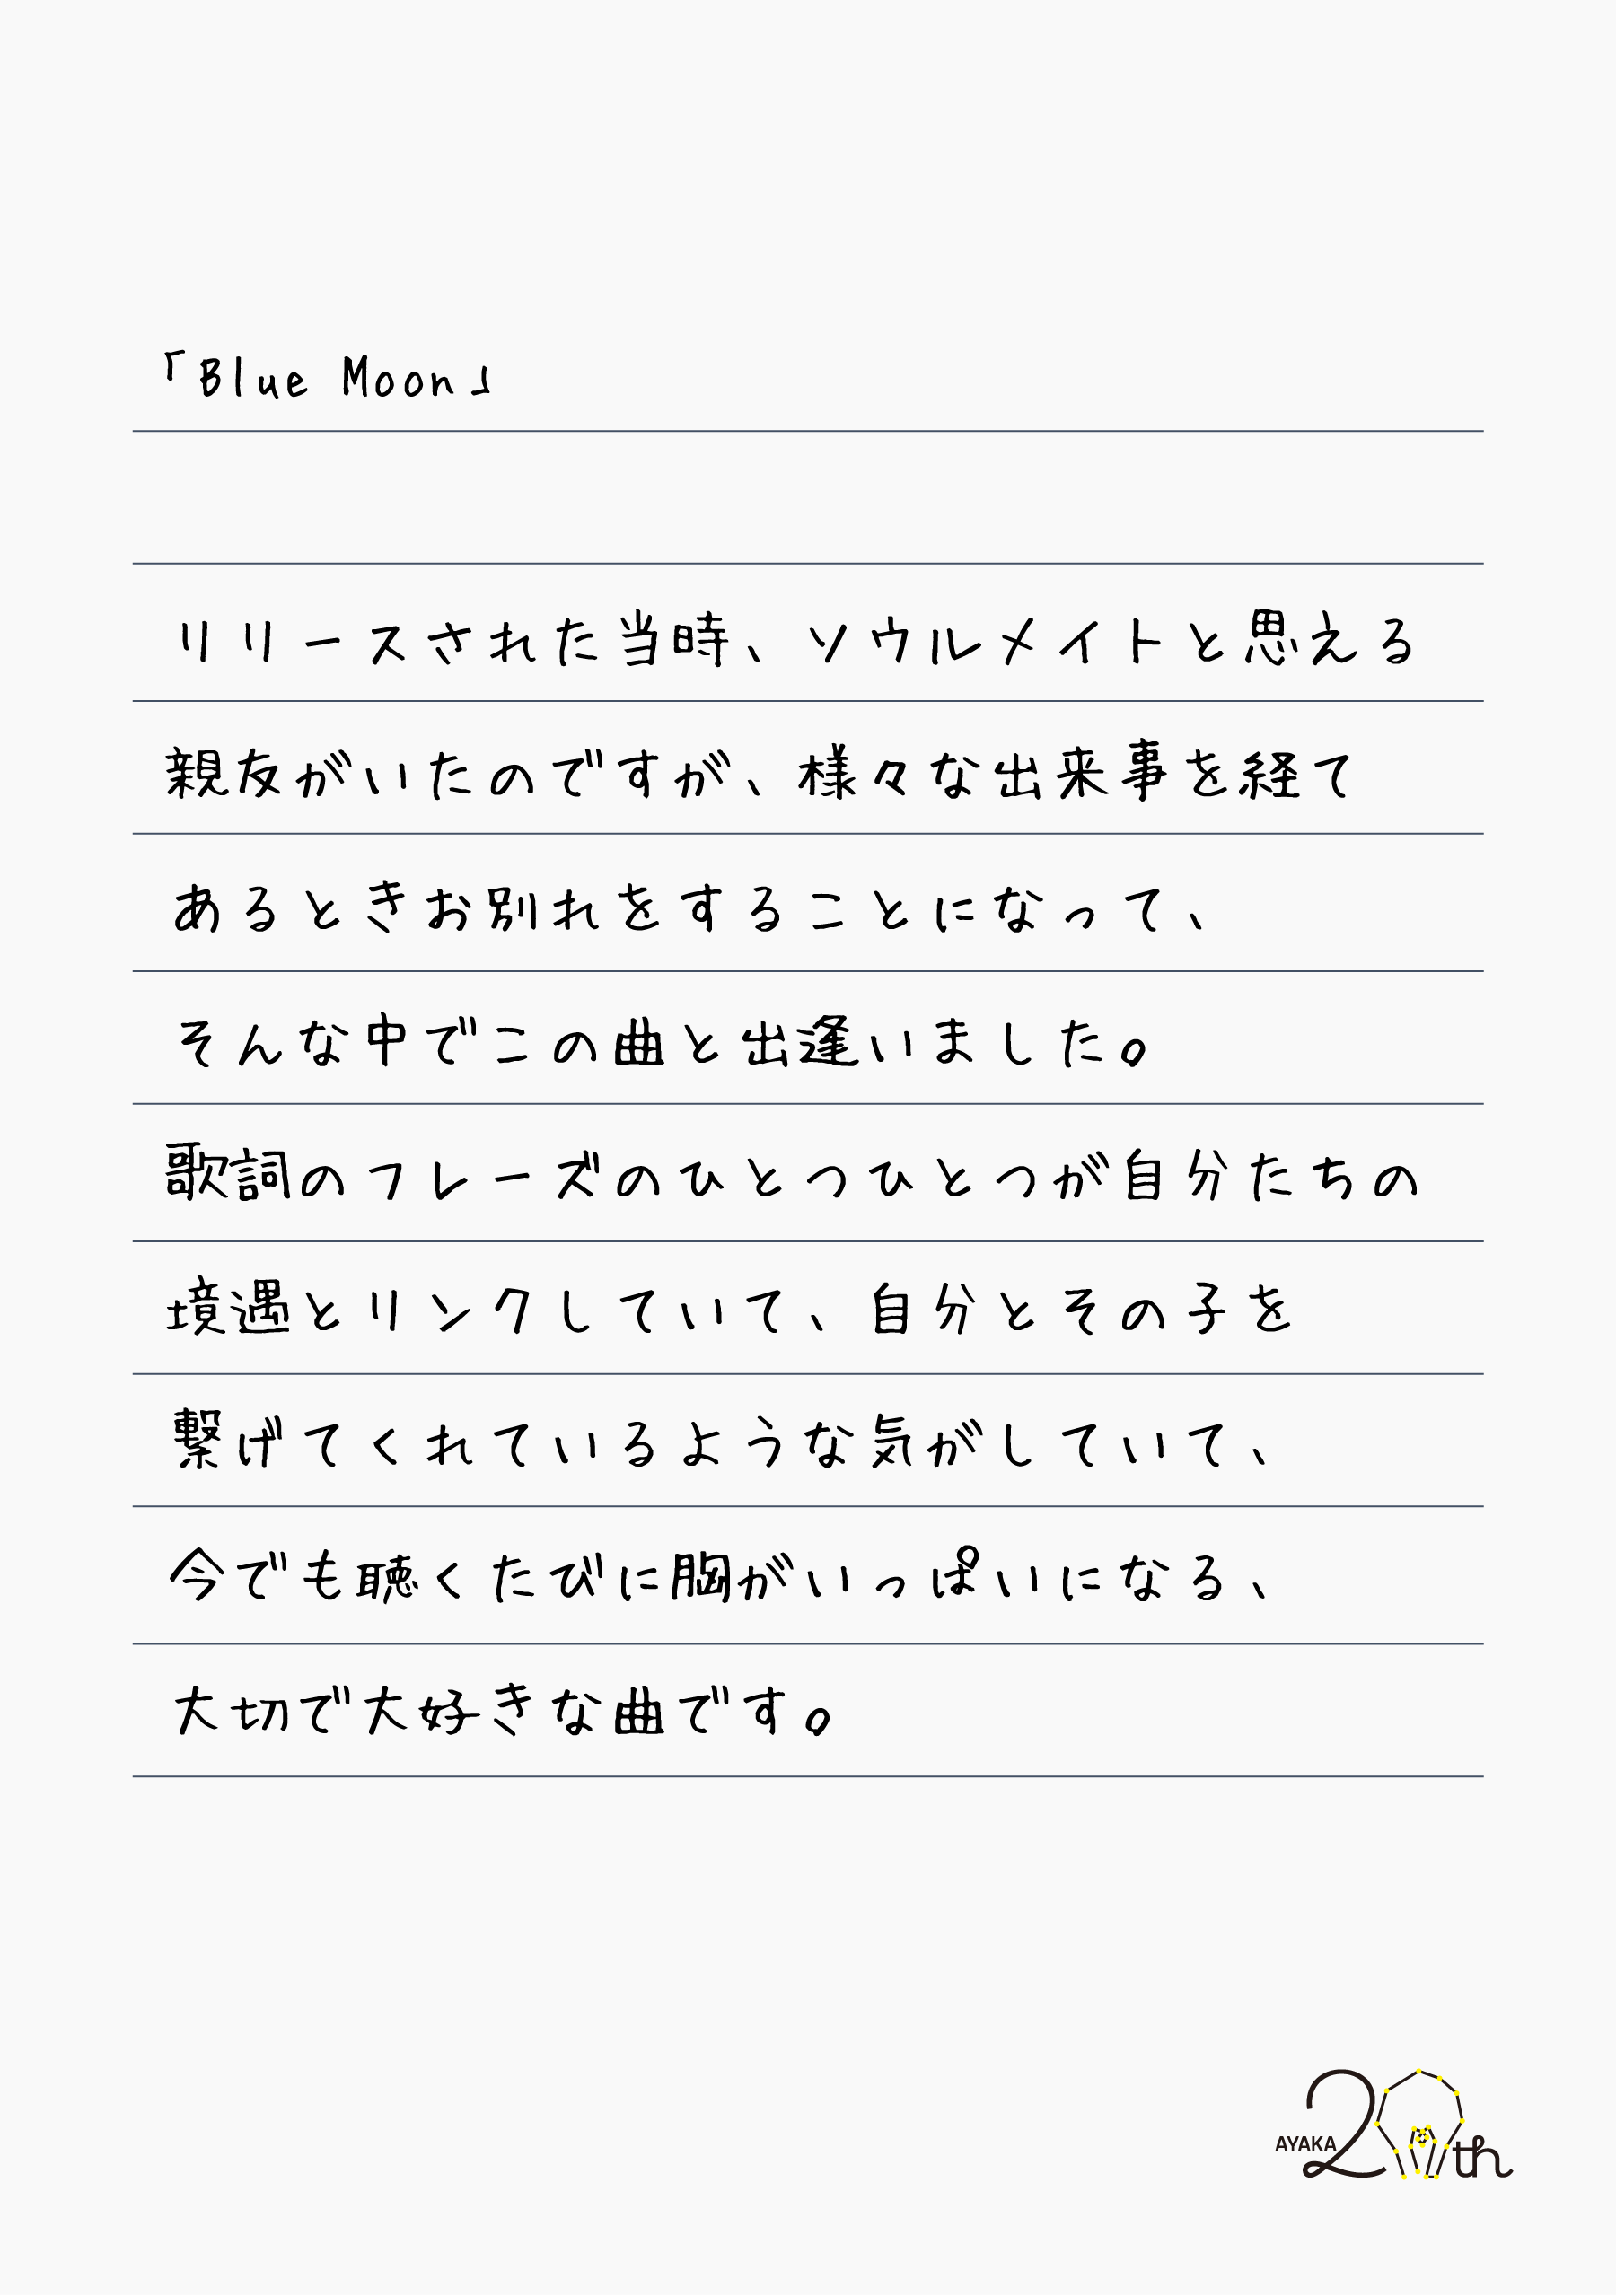 「Blue Moon」
リリースされた当時、ソウルメイトと思える
親友がいたのですが、様々な出来事を経て
あるときお別れをすることになって、
そんな中でこの曲と出逢いました。
歌詞のフレーズのひとつひとつが自分たちの
境遇とリンクしていて、自分とその子を
繋げてくれているような気がしていて、
今でも聴くたびに胸がいっぱいになる、
大切で大好きな曲です。
AYAKA 20th